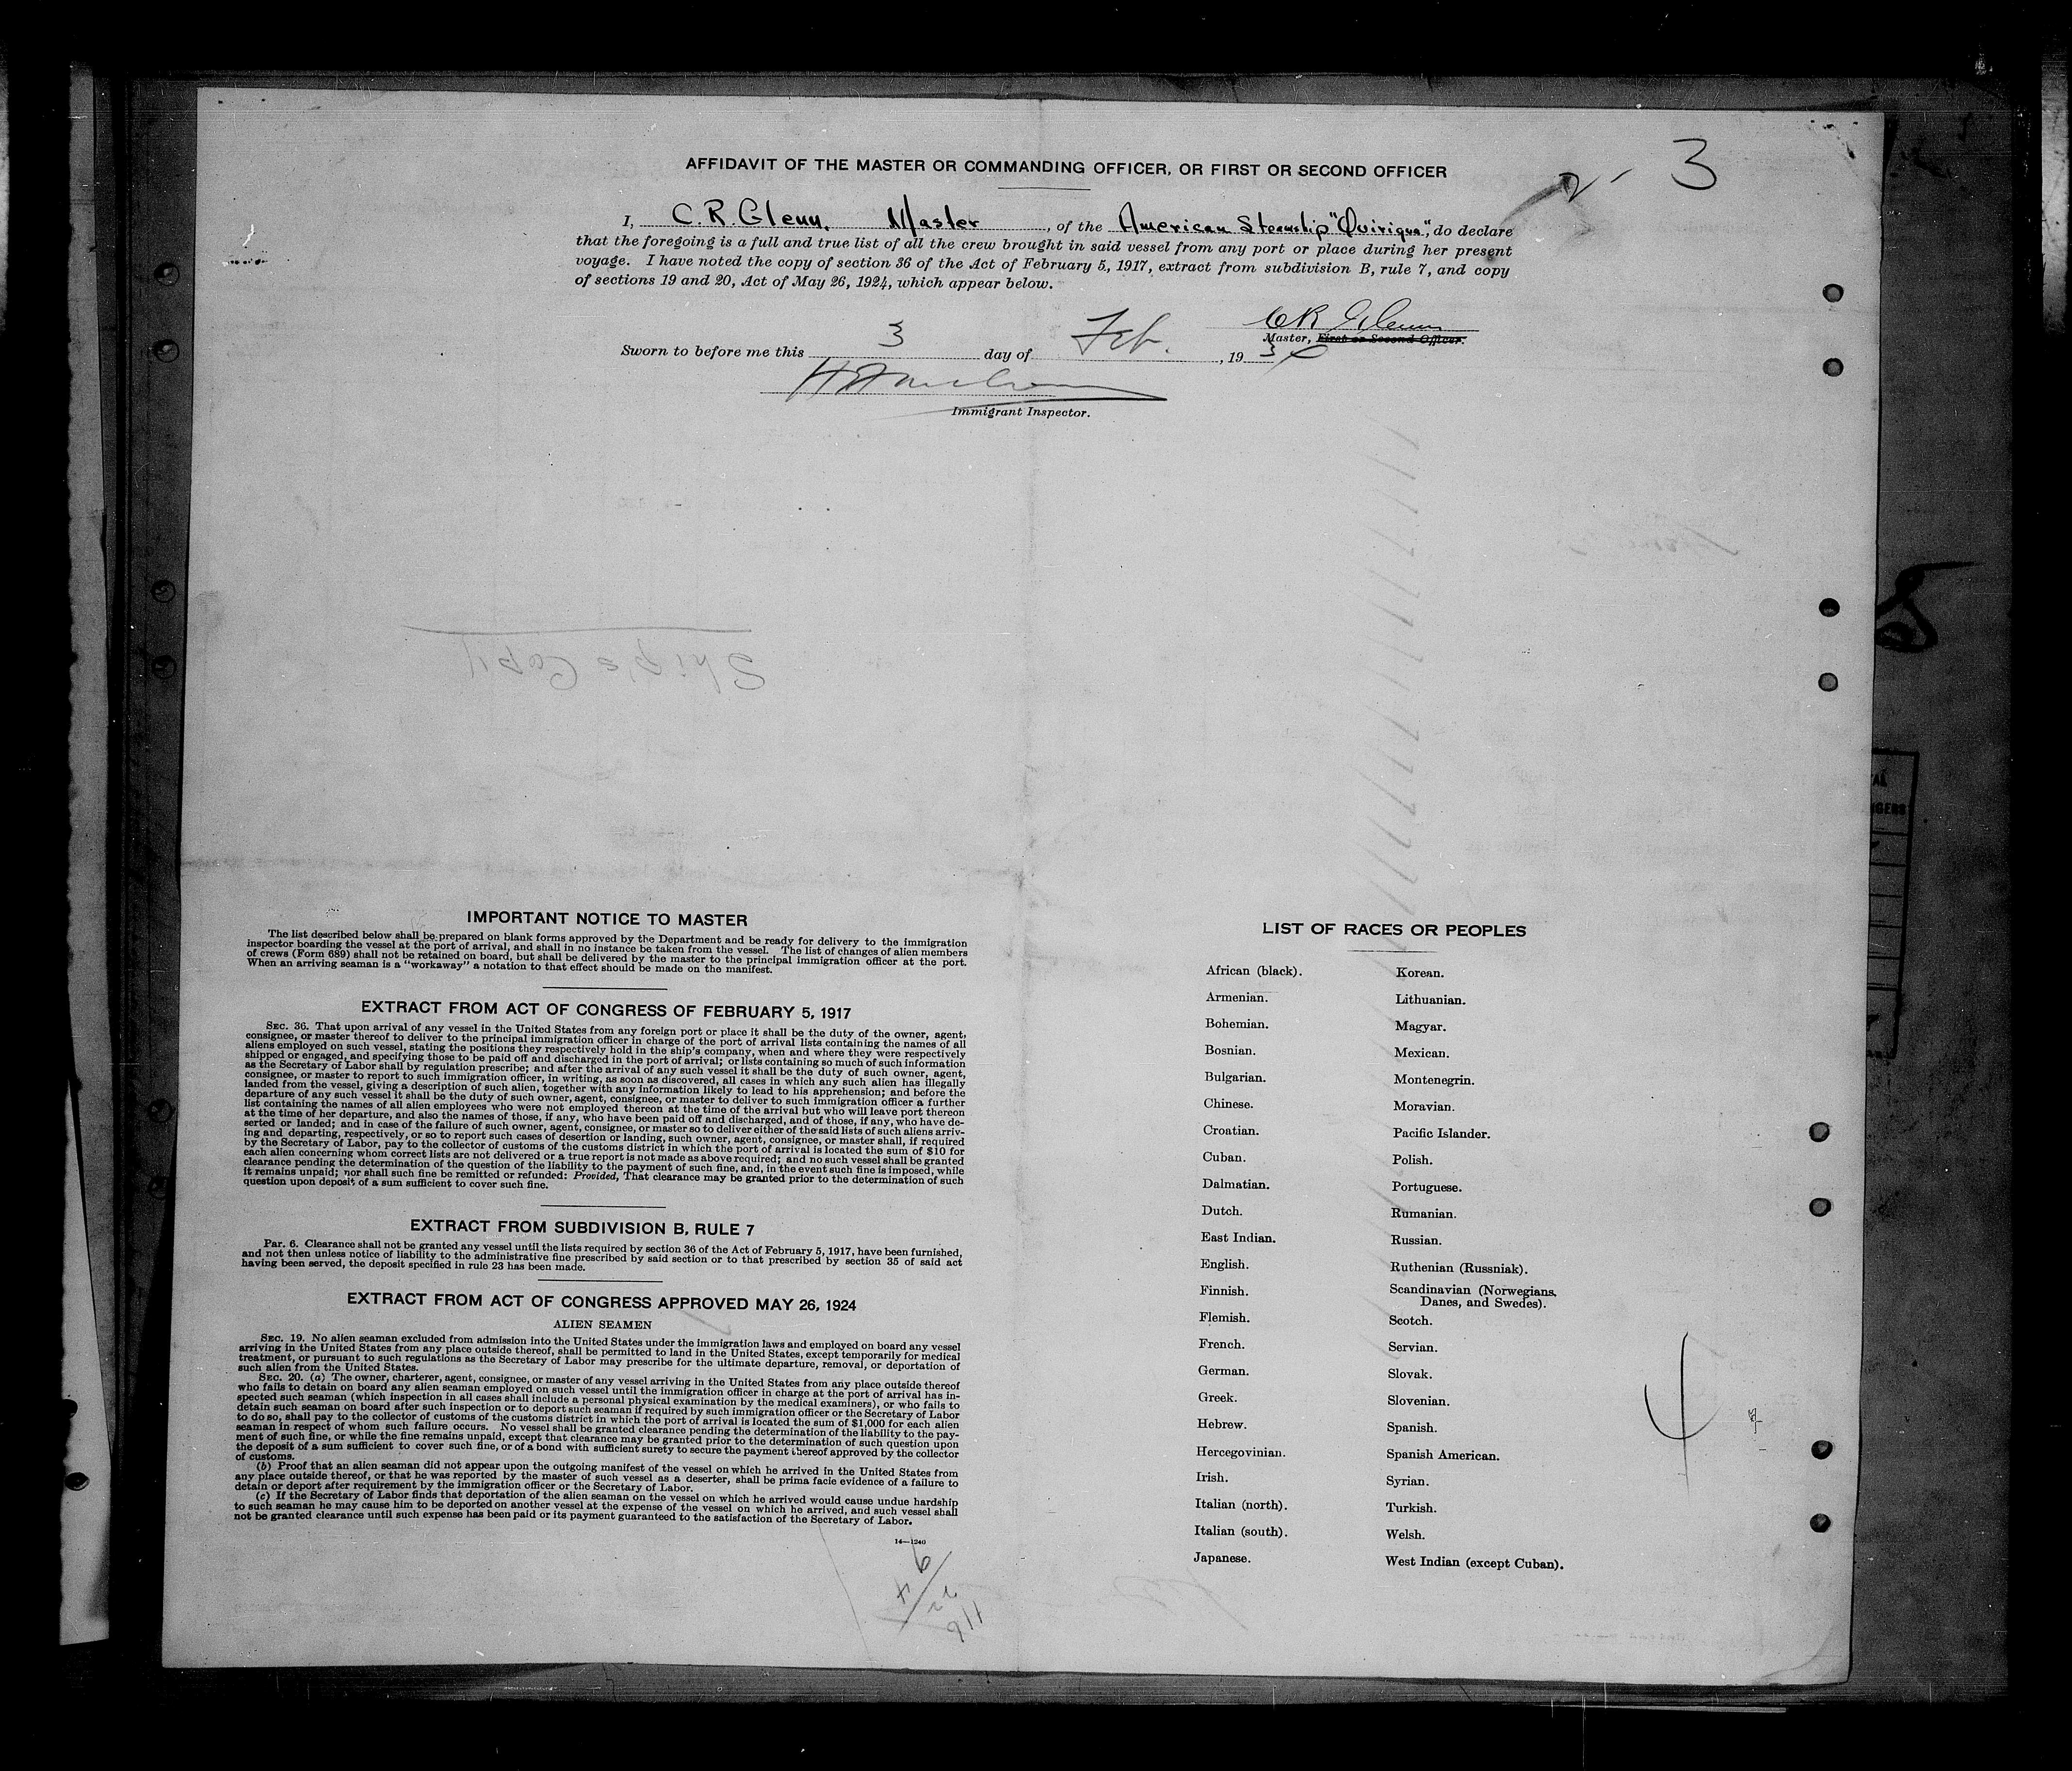 2- 3
AFFIDAVIT OF THE MASTER OR COMMANDING OFFICER, OR FIRST OR SECOND OFFICER
I, C. R. Glenn, Master, of the American Steamship "Quirigua", do declare
that the foregoing is a full and true list of all the crew brought in said vessel from any port or place during her present
voyage. I have noted the copy of section 36 of the Act of February 5, 1917, extract from subdivision B, rule 7, and copy
of sections 19 and 20, Act of May 26, 1924, which appear below.
CR Glenn
Master, First or Second Officer.
Sworn to before me this 3 day of Feb. , 19 34
Immigrant Inspector.
Ship's Copy
IMPORTANT NOTICE TO MASTER
The list described below shall be prepared on blank forms approved by the Department and be ready for delivery to the immigration
inspector boarding the vessel at the port of arrival, and shall in no instance be taken from the vessel. The list of changes of alien members
of crews (Form 689) shall not be retained on board, but shall be delivered by the master to the principal immigration officer at the port.
When an arriving seaman is a "workaway" a notation to that effect should be made on the manifest.
EXTRACT FROM ACT OF CONGRESS OF FEBRUARY 5, 1917
SEC. 36. That upon arrival of any vessel in the United States from any foreign port or place it shall be the duty of the owner, agent,
consignee, or master thereof to deliver to the principal immigration officer in charge of the port of arrival lists containing the names of all
aliens employed on such vessel, stating the positions they respectively hold in the ship's company, when and where they were respectively
shipped or engaged, and specifying those to be paid off and discharged in the port of arrival; or lists containing so much of such information
as the Secretary of Labor shall by regulation prescribe; and after the arrival of any such vessel it shall be the duty of such owner, agent,
consignee, or master to report to such immigration officer, in writing, as soon as discovered, all cases in which any such alien has illegally
landed from the vessel, giving a description of such alien, together with any information likely to lead to his apprehension; and before the
departure of any such vessel it shall be the duty of such owner, agent, consignee, or master to deliver to such immigration officer a further
list containing the names of all alien employees who were not employed thereon at the time of the arrival but who will leave port thereon
at the time of her departure, and also the names of those, if any, who have been paid off and discharged, and of those, if any, who have de-
serted or landed; and in case of the failure of such owner, agent, consignee, or master so to deliver either of the said lists of such aliens arriv-
ing and departing, respectively, or so to report such cases of desertion or landing, such owner, agent, consignee, or master shall, if required
by the Secretary of Labor, pay to the collector of customs of the customs district in which the port of arrival is located the sum of $10 for
each alien concerning whom correct lists are not delivered or a true report is not made as above required; and no such vessel shall be granted
clearance pending the determination of the question of the liability to the payment of such fine, and, in the event such fine is imposed, while
it remains unpaid; nor shall such fine be remitted or refunded: Provided, That clearance may be granted prior to the determination of such
question upon deposit of a sum sufficient to cover such fine.
EXTRACT FROM SUBDIVISION B, RULE 7
Par. 6. Clearance shall not be granted any vessel until the lists required by section 36 of the Act of February 5, 1917, have been furnished,
and not then unless notice of liability to the administrative fine prescribed by said section or to that prescribed by section 35 of said act
having been served, the deposit specified in rule 23 has been made.
EXTRACT FROM ACT OF CONGRESS APPROVED MAY 26, 1924
ALIEN SEAMEN
SEC. 19. No alien seaman excluded from admission into the United States under the immigration laws and employed on board any vessel
arriving in the United States from any place outside thereof, shall be permitted to land in the United States, except temporarily for medical
treatment, or pursuant to such regulations as the Secretary of Labor may prescribe for the ultimate departure, removal, or deportation of
such alien from the United States.
SEC. 20. (a) The owner, charterer, agent, consignee, or master of any vessel arriving in the United States from any place outside thereof
who fails to detain on board any alien seaman employed on such vessel until the immigration officer in charge at the port of arrival has in-
spected such seaman (which inspection in all cases shall include a personal physical examination by the medical examiners), or who fails to
detain such seaman on board after such inspection or to deport such seaman if required by such immigration officer or the Secretary of Labor
to do so, shall pay to the collector of customs of the customs district in which the port of arrival is located the sum of $1,000 for each alien
seaman in respect of whom such failure occurs. No vessel shall be granted clearance pending the determination of the liability to the pay-
ment of such fine, or while the fine remains unpaid, except that clearance may be granted prior to the determination of such question upon
the deposit of a sum sufficient to cover such fine, or of a bond with sufficient surety to secure the payment thereof approved by the collector
of customs.
(b) Proof that an alien seaman did not appear upon the outgoing manifest of the vessel on which he arrived in the United States from
any place outside thereof, or that he was reported by the master of such vessel as a deserter, shall be prima facie evidence of a failure to
detain or deport after requirement by the immigration officer or the Secretary of Labor.
(c) If the Secretary of Labor finds that deportation of the alien seaman on the vessel on which he arrived would cause undue hardship
to such seaman he may cause him to be deported on another vessel at the expense of the vessel on which he arrived, and such vessel shall
not be granted clearance until such expense has been paid or its payment guaranteed to the satisfaction of the Secretary of Labor.
14—1240
LIST OF RACES OR PEOPLES
African (black).
Armenian.
Bohemian.
Bosnian.
Bulgarian.
Chinese.
Croatian.
Cuban.
Dalmatian.
Dutch.
East Indian.
English.
Finnish.
Flemish.
French.
German.
Greek.
Hebrew.
Hercegovinian.
Irish.
Italian (north).
Italian (south).
Japanese.
Korean.
Lithuanian.
Magyar.
Mexican.
Montenegrin.
Moravian.
Pacific Islander.
Polish.
Portuguese.
Rumanian.
Russian.
Ruthenian (Russniak).
Scandinavian (Norwegians,
Danes, and Swedes).
Scotch.
Servian.
Slovak.
Slovenian.
Spanish.
Spanish American.
Syrian.
Turkish.
Welsh.
West Indian (except Cuban).